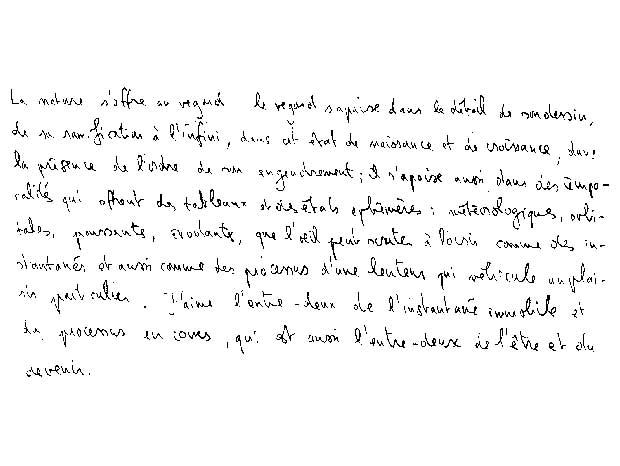 La nature s'offre au regard le regard s'apaise dans le détail de son dessin,
de sa ramification à l'infini, dans cet état de naissance et de croissance, dans
la présence de l'ordre de son engendrement ; il s'apaise aussi dans des tempo-
ralités qui offrent des tableaux et des états éphémères : météorologiques, orbi-
tales, poussante, évoluante, que l'œil peut scruter à loisir comme des in-
stantanés et aussi comme des processus d'une lenteur qui véhicule un plai-
sir particulier. J'aime l'entre-deux de l'instantané immobile et
du processus en cours, qui est aussi l'entre-deux de l'être et du
devenir.